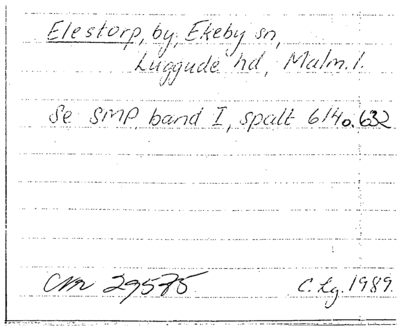 Elestorp, by, Ekeby sn,
Luggude hd, Malm. l.
Se SMP, band I, spalt 614 o. 632
CM 29575
C. Lg. 1989.